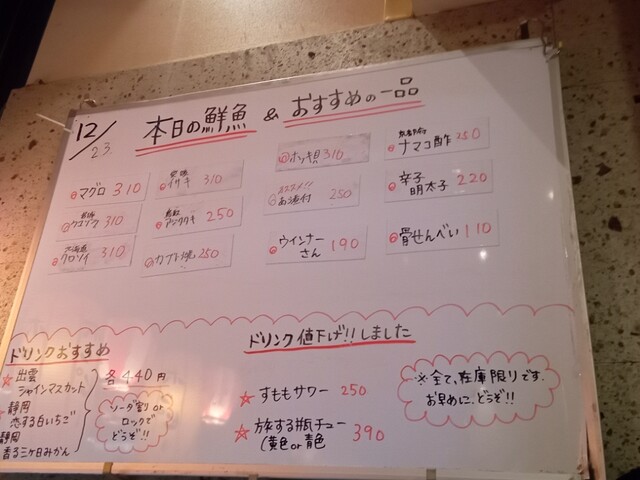 12/23
本日の鮮魚 & おすすめの一品
マグロ 310
310
310
クロソイ 310
イサキ 310
250
カブト焼 250
ホッキ貝 310
オススメ!!
お漬付 250
ウインナーさん 190
ナマコ酢 250
辛子明太子 220
骨せんべい 110
ドリンクおすすめ
出雲
シャインマスカット
静岡
恋する白いちご
静岡
香る三ケ日みかん
各440円
ソーダ割り or
ロックで
どうぞ!!
ドリンク値下げ!!しました
すももサワー 250
旅する瓶チュー
(黄色 or 青色 390
※全て、在庫限りです。
お早めに、どうぞ!!